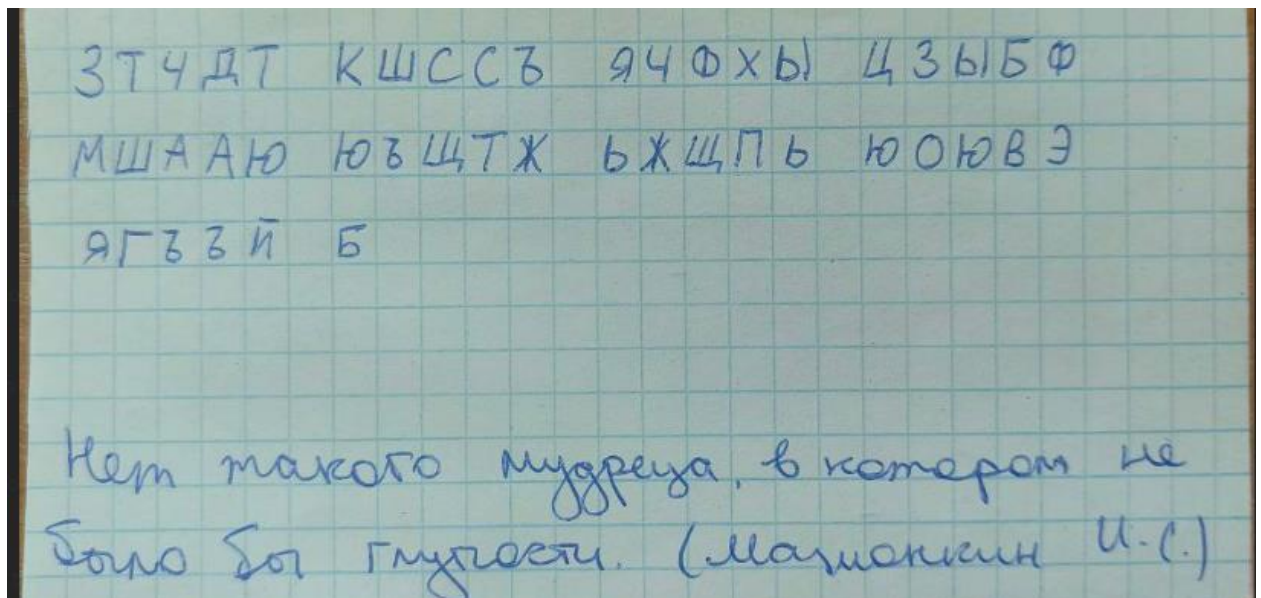 ЗТЧДТ КШССЪ ЯЧФХЫ ЦЗЫБФ
МШААЮ ЮЪЩТЖ ЬЖЩПЬ ЮОЮВЭ
ЯГЪЪЙ Б
Нет такого мудреца, в котором не
было бы глупости. (Мационкин И.С.)